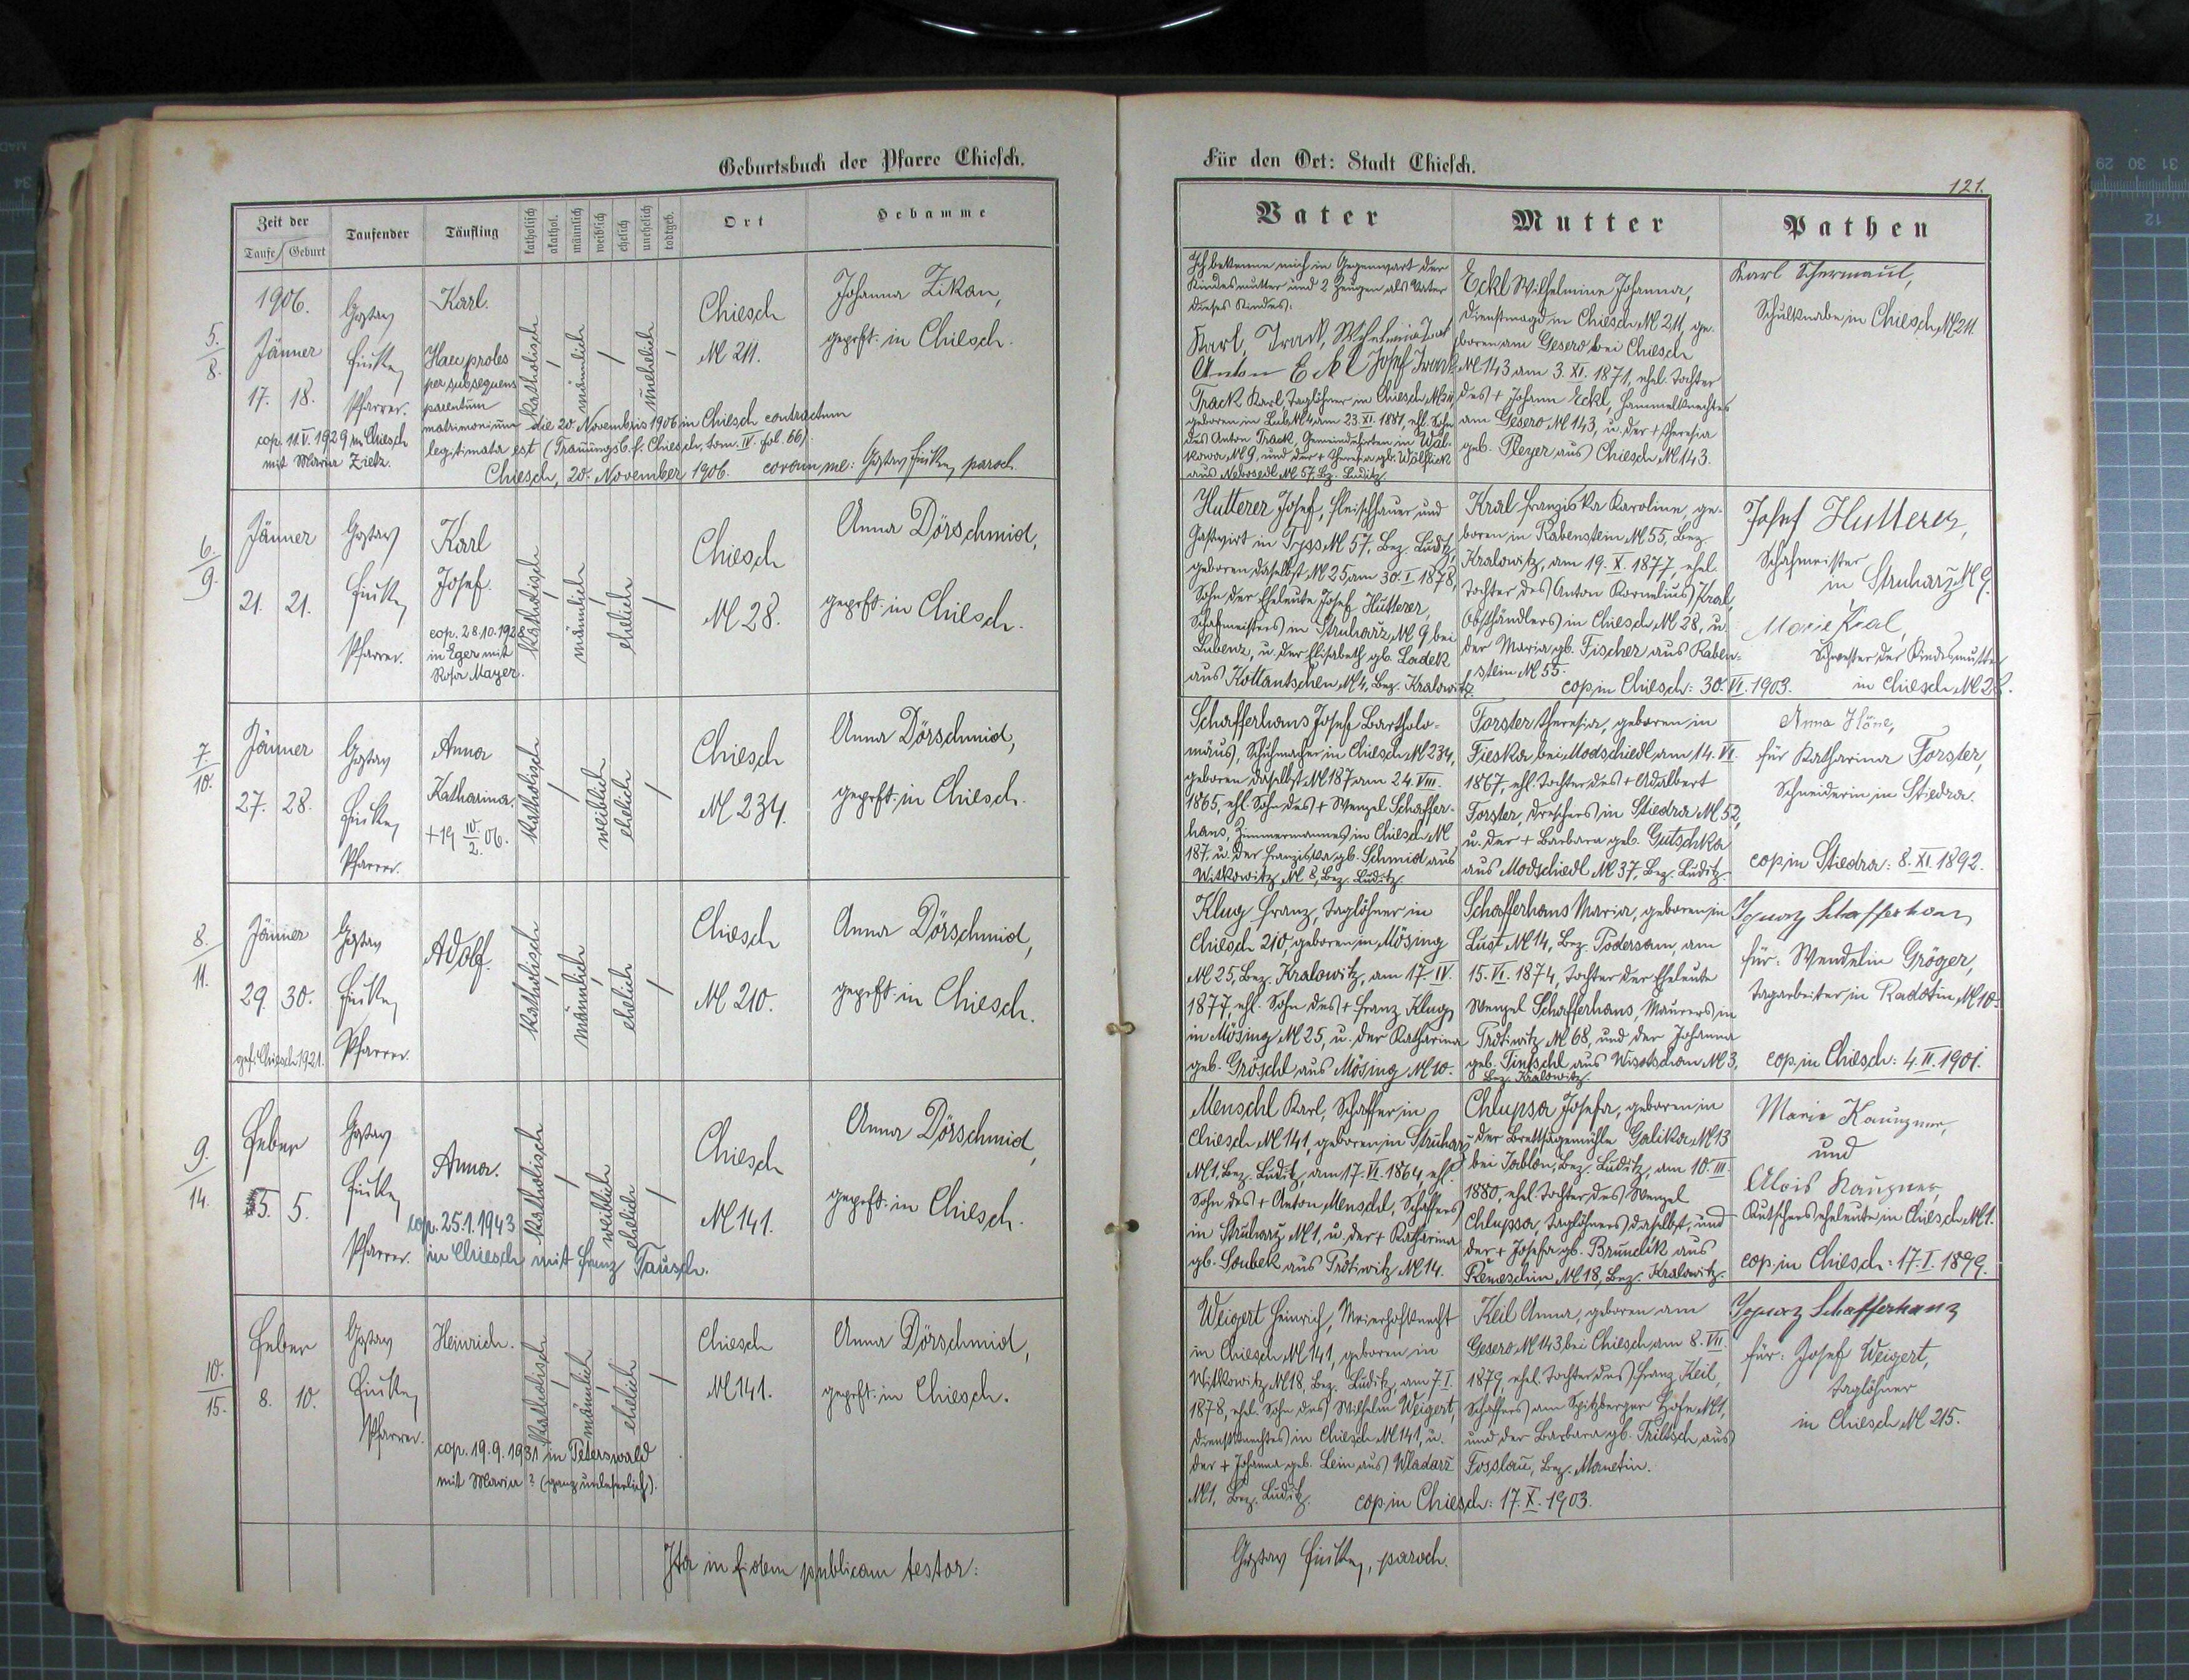 Geburtsbuch der Pfarre Chiesch.
Zeit der
Taufe Geburt
Taufender
Täufling
katholisch
akathol.
männlich
weiblich
ehelich
unehelich
todtgeb.
Ort
Hebamme
5.
8.
1906.
Jänner
17. 18.
cop. 11.V.1929 in Chiesch
mit Maria Zietz.
Gustav
Pfarrer.
Karl.
Haec proles
per subsequens
parentum
matrimonium die 20 Novembris 1906 in Chiesch contractum
legitimata est (Trauungsb. f. Chiesch, tom. IV. fol. 66).
Chiesch, 20. November 1906. coram me: Gustav paroch.
katholisch
männlich
unehelich
Chiesch
№ 211.
Johanna Zikan,
geprft. in Chiesch.
6.
9.
Jänner
21. 21.
Gustav
Pfarrer.
Karl
Josef.
cop. 28.10.1928
in Eger mit
Rosa Mayer.
katholisch
männlich
ehelich
Chiesch
№ 28.
Anna Dörschmid,
geprft. in Chiesch.
7.
10.
Jänner
27. 28.
Gustav
Pfarrer.
Anna
Katharina.
+ 19 10/2. 06.
katholisch
weiblich
ehelich
Chiesch
№ 234.
Anna Dörschmid,
geprft. in Chiesch.
8.
11.
Jänner
29. 30.
Chiesch 1921.
Gustav
Pfarrer.
Adolf.
katholisch
männlich
ehelich
Chiesch
№ 210.
Anna Dörschmid,
geprft. in Chiesch.
9.
14.
Feber
5. 5.
Gustav
Pfarrer.
Anna.
cop. 25.1.1943
in Chiesch mit Franz Tausch.
katholisch
weiblich
ehelich
Chiesch
№ 141.
Anna Dörschmid,
geprft. in Chiesch.
10.
15.
Feber
8. 10.
Gustav
Pfarrer.
Heinrich.
cop. 19.9.1931 in Peterswald
mit Maria ? (ganz unleserlich).
katholisch
männlich
ehelich
Chiesch
№ 141.
Anna Dörschmid,
geprft. in Chiesch.
Ita in fidem publicam testor:
Für den Ort: Stadt Chiesch.
121.
Vater
Mutter
Pathen
Ich bekenne mich in Gegenwart der
Kindesmutter und 2 Zeugen als Vater
dieses Kindes:
Karl Track,
Anton Eckl Josef Track
Track Karl, Taglöhner in Chiesch
geboren in am 23.XI.1881, ehl. Sohn
des Anton Track, in Wal-
kowa № 9, und der + Theresia gb. Wölflick
aus Nebosedl № 57, Bz. Luditz.
Eckl Wilhelmine Johanna,
Dienstmagd in Chiesch № 211, ge-
boren am Gesero bei Chiesch
№ 143 am 3. XI. 1871, ehel. Tochter
des + Johann Eckl, Hammelknechtes
am Gesero № 143, u. der + Theresia
geb. Plezer aus Chiesch № 143.
Karl Schermaul,
Schulknabe in Chiesch № 211
Hutterer Josef, Fleischhauer und
Gastwirt in Tyss № 57, Bez. Luditz,
geboren daselbst № 25 am 30. I. 1878,
Sohn der Eheleute Josef Hutterer,
Schafmeisters in Struharz № 9 bei
Lubenz, u. der Elisabeth gb. Ladek
aus Kottantschen № 4, Bez. Kralowitz.
Kral Franziska Karoline, ge-
boren in Rabenstein № 55, Bez.
Kralowitz, am 19. X. 1877, ehel.
Tochter des Anton Kornelius Kral,
Obsthändlers in Chiesch № 28, u.
der Maria gb. Fischer aus Raben-
stein № 55.
cop. in Chiesch: 30. VI. 1903.
Josef Hutterer,
Schafmeister
in Struharž № 9.
Marie Kral,
Schwester der Kindesmutter
in Chiesch № 28.
Schafferhans Josef Bartholo-
mäus, Schuhmacher in Chiesch № 234,
geboren daselbst № 187 am 24. VIII.
1865, ehl. Sohn des + Wenzel Schaffer-
hans, Zimmermannes in Chiesch №
187, u. der Franziska gb. Schmid aus
Witkowitz № 8, Bez. Luditz.
Forster Theresia, geboren in
Fieska bei Modschiedl am 14. VI.
1867, ehl. Tochter des + Adalbert
Forster, Dreschers in Stiedra № 52,
u. der + Barbara geb. Gutschka
aus Modschiedl № 37, Bez. Luditz.
Anna Höne,
für Katharina Forster,
Schneiderin in Stiedra.
cop. in Stiedra: 8. XI. 1892.
Klug Franz, Taglöhner in
Chiesch 210, geboren in Mösing
№ 25, Bez. Kralowitz, am 17. IV.
1877, ehl. Sohn des + Franz Klug
in Mösing № 25, u. der Katharina
geb. Gröschl aus Mösing № 10.
Schafferhans Maria, geboren in
Lust № 14, Bez. Podersam, am
15. VI. 1874, Tochter der Eheleute
Wenzel Schafferhans, Maurers in
Protiwitz № 68, und der Johanna
geb. Tintschl aus Wisotschan № 3,
Bez. Kralowitz.
Ignaz Schafferhans
für: Wendelin Gröger,
Tagarbeiter in Radotin № 10.
cop. in Chiesch: 4. II. 1901.
Menschl Karl, Schaffer in
Chiesch № 141, geboren in Struharz
№ 1, Bez. Luditz, am 17. VI. 1864, ehl.
Sohn des + Anton Menschl, Schaffers
in Struharz № 1, u. der + Katharina
gb. Soubek aus Protiwitz № 14.
Chlupsa Josefa, geboren in
der Brettsägemühle Galika № 13
bei Jablon, Bez. Luditz, am 10. III.
1880, ehel. Tochter des Wenzel
Chlupsa, Taglöhners daselbst, und
der + Josefa gb. Brundik aus
Remeschin № 18, Bez. Kralowitz.
Marie Kauzner,
und
Alois Kauzner,
Kutscherseheleute in Chiesch № 1.
cop. in Chiesch: 17. I. 1899.
Weigert Heinrich, Meierhofknecht
in Chiesch № 141, geboren in
Witkowitz № 18, Bez. Luditz, am 7. I.
1878, ehel. Sohn des Wilhelm Weigert,
Dienstknechtes in Chiesch № 141, u.
der + Johanna geb. Lein aus Wladarž
№ 1, Bez. Luditz.
Keil Anna, geboren am
Gesero № 143 bei Chiesch am 8. VII.
1879, ehel. Tochter des Franz Keil,
Schaffers am Spitzberger Hofe № 1,
und der Barbara gb. Triltsch aus
Fosslau, Bez. Manetin.
cop. in Chiesch: 17. X. 1903.
Ignaz Schafferhans
für: Josef Weigert,
Taglöhner
in Chiesch № 215.
Gustav paroch.